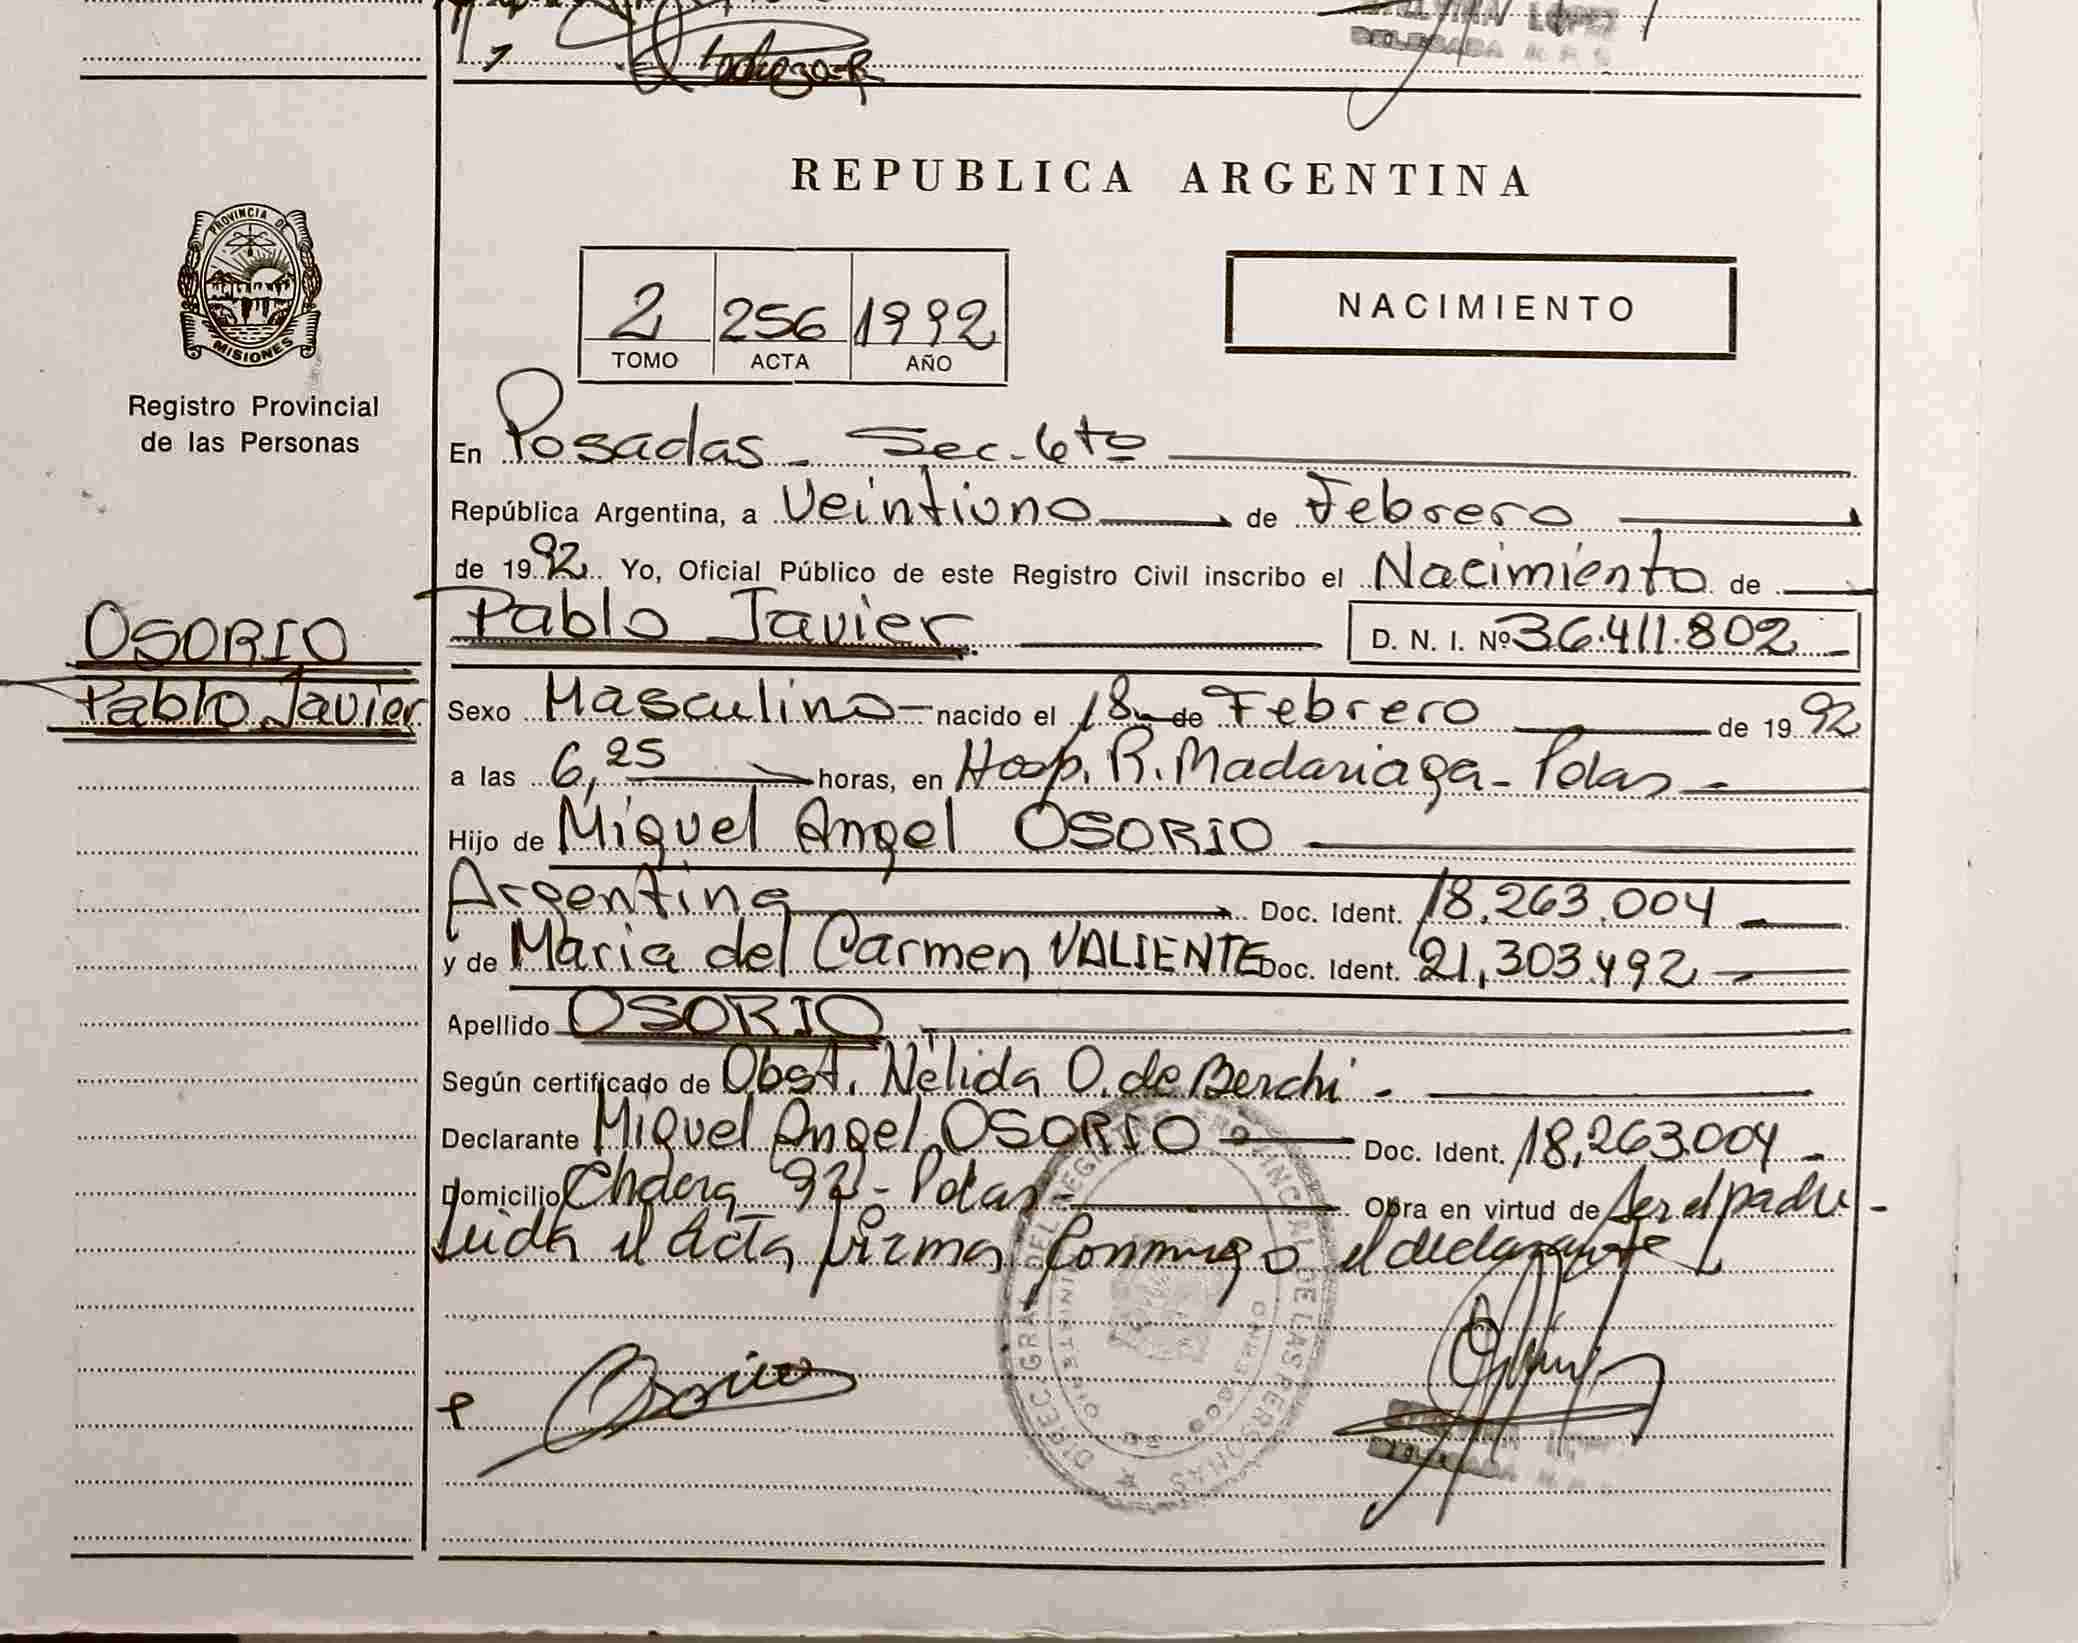 LOPEZ
DELEGADA
REPUBLICA ARGENTINA
PROVINCIA DE
MISIONES
Registro Provincial
de las Personas
2 256 1992
TOMO ACTA AÑO
NACIMIENTO
En Posadas - Sec. 6to
República Argentina, a Veintiuno de Febrero
de 1992. Yo, Oficial Público de este Registro Civil inscribo el Nacimiento de
OSORIO
Pablo Javier
Pablo Javier D. N. I. Nº 36.411.802
Sexo Masculino nacido el 18 de Febrero de 1992
a las 6,25 horas, en Hosp. R. Madariaga - Pdas
Hijo de Miguel Angel OSORIO
Argentina Doc. Ident. 18.263.004
y de Maria del Carmen VALIENTE Doc. Ident. 21.303.492
Apellido OSORIO
Según certificado de Obst. Nélida O. de Berchi
Declarante Miguel Angel OSORIO Doc. Ident. 18.263.004
Domicilio Chacra 92 - Pdas - Obra en virtud de ser el padre -
Leida el Acta firma conmigo el declarante
DIREC. GRAL. DEL REGISTRO PROVINCIAL DE LAS PERSONAS
Osorio
DELEGADA